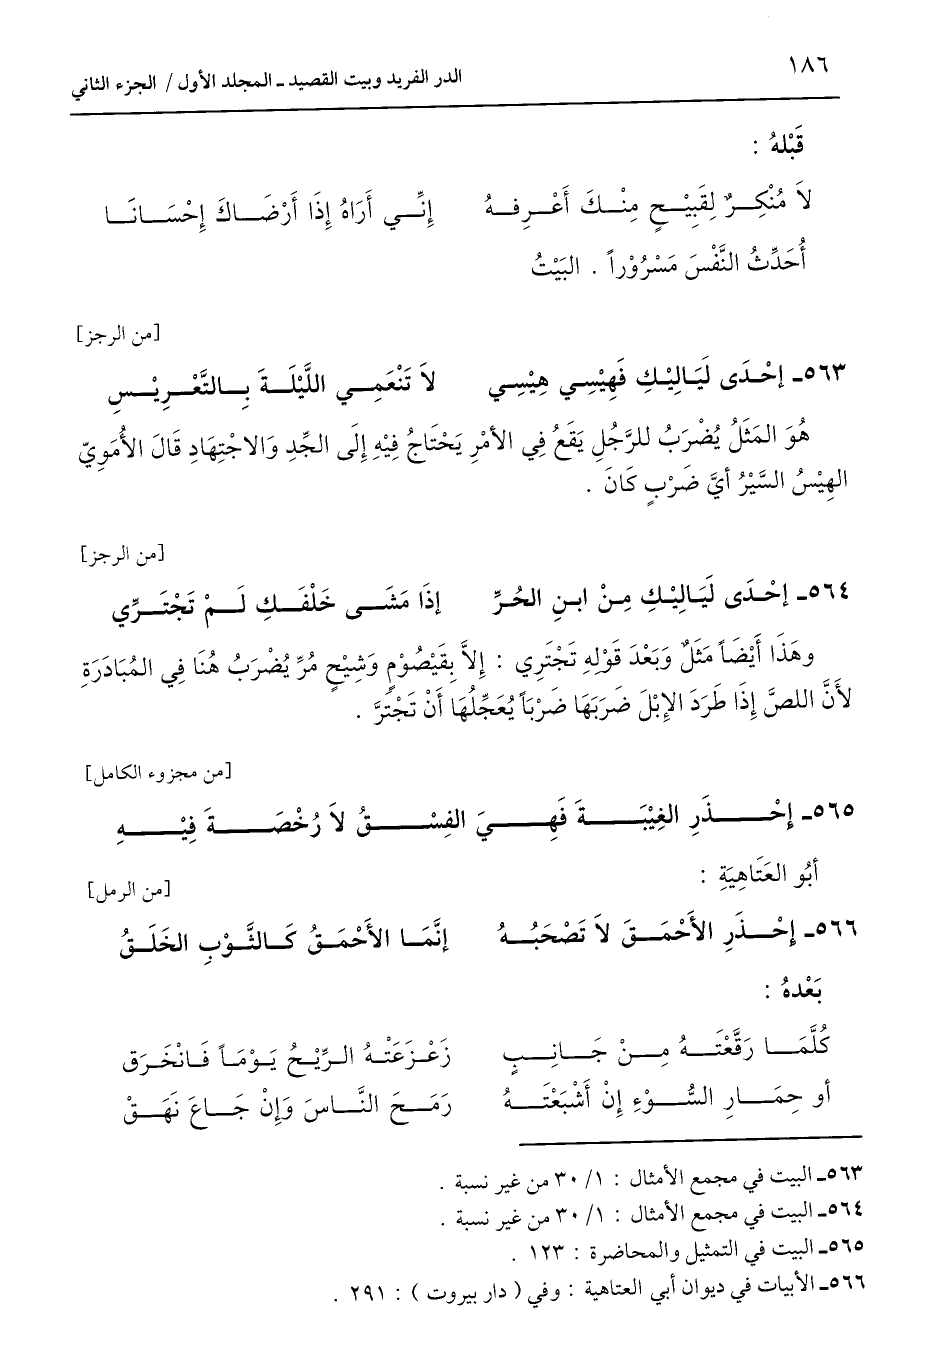 ١٨٦
الدر الفريد وبيت القصيد ـ المجلد الأول / الجزء الثاني
قَبْلهُ :
لاَ مُنْكِرٌ لِقَبِيْحٍ مِنْكَ أَعْرِفهُ إِنِّي أَرَاهُ إِذَا أَرْضَاكَ إِحْسَانَا
أُحَدِّثُ النَّفْسَ مَسْرُوْراً . البَيْتُ
[من الرجز]
٥٦٣ـ إحْدَى لَيَالِيْكِ فَهِيْسِي هِيْسِي لاَ تَنْعَمِي اللَّيْلَةَ بِالتَّعْرِيْسِ
هُوَ المَثَلُ يُضْرَبُ للرَّجُلِ يَقَعُ فِي الأمْرِ يَحْتَاجُ فِيْهِ إِلَى الجِّدِ وَالاجْتِهَادِ قَالَ الأُمَوِيّ
الهِيْسُ السَّيْرُ أيَّ ضَرْبٍ كَانَ .
[من الرجز]
٥٦٤ـ إحْدَى لَيَالِيْكِ مِنْ ابنِ الحُرِّ إذَا مَشَى خَلْفَكِ لَمْ تَجْتَرِّي
وهَذَا أَيْضَاً مَثَلٌ وَبَعْدَ قَوْلِهِ تَجْتَرِي : إلاَّ بِقَيْصُوْمٍ وَشِيْحٍ مُرِّ يُضْرَبُ هُنَا فِي المُبَادَرَةِ
لأَنَّ اللصَّ إِذَا طَرَدَ الإِبْلَ ضَرَبَهَا ضَرْبَاً يُعَجِّلُهَا أَنْ تَجْتَرَّ .
[من مجزوء الكامل]
٥٦٥ـ إِحْذَرِ الغِيْبَةَ فَهِيَ الفِسْقُ لاَ رُخْصَةَ فِيْهِ
أبُو العَتَاهِيَةِ :
[من الرمل]
٥٦٦ـ إحْذَرِ الأَحْمَقَ لاَ تَصْحَبُهُ إنَّمَا الأَحْمَقُ كَالثَّوْبِ الخَلَقُ
بَعْدهُ :
كُلَّمَا رَقَّعْتَهُ مِنْ جَانِبٍ زَعْزَعَتْهُ الرِّيْحُ يَوْمَاً فَانْخَرَق
أو حِمَارِ السُّوْءِ إنْ أَشْبَعْتَهُ رَمَحَ النَّاسَ وَإنْ جَاعَ نَهَقْ
٥٦٣ـ البيت في مجمع الأمثال : ١/ ٣٠ من غير نسبة .
٥٦٤ـ البيت في مجمع الأمثال : ١/ ٣٠ من غير نسبة .
٥٦٥ـ البيت في التمثيل والمحاضرة : ١٢٣ .
٥٦٦ـ الأبيات في ديوان أبي العتاهية : وفي ( دار بيروت ) : ٢٩١ .